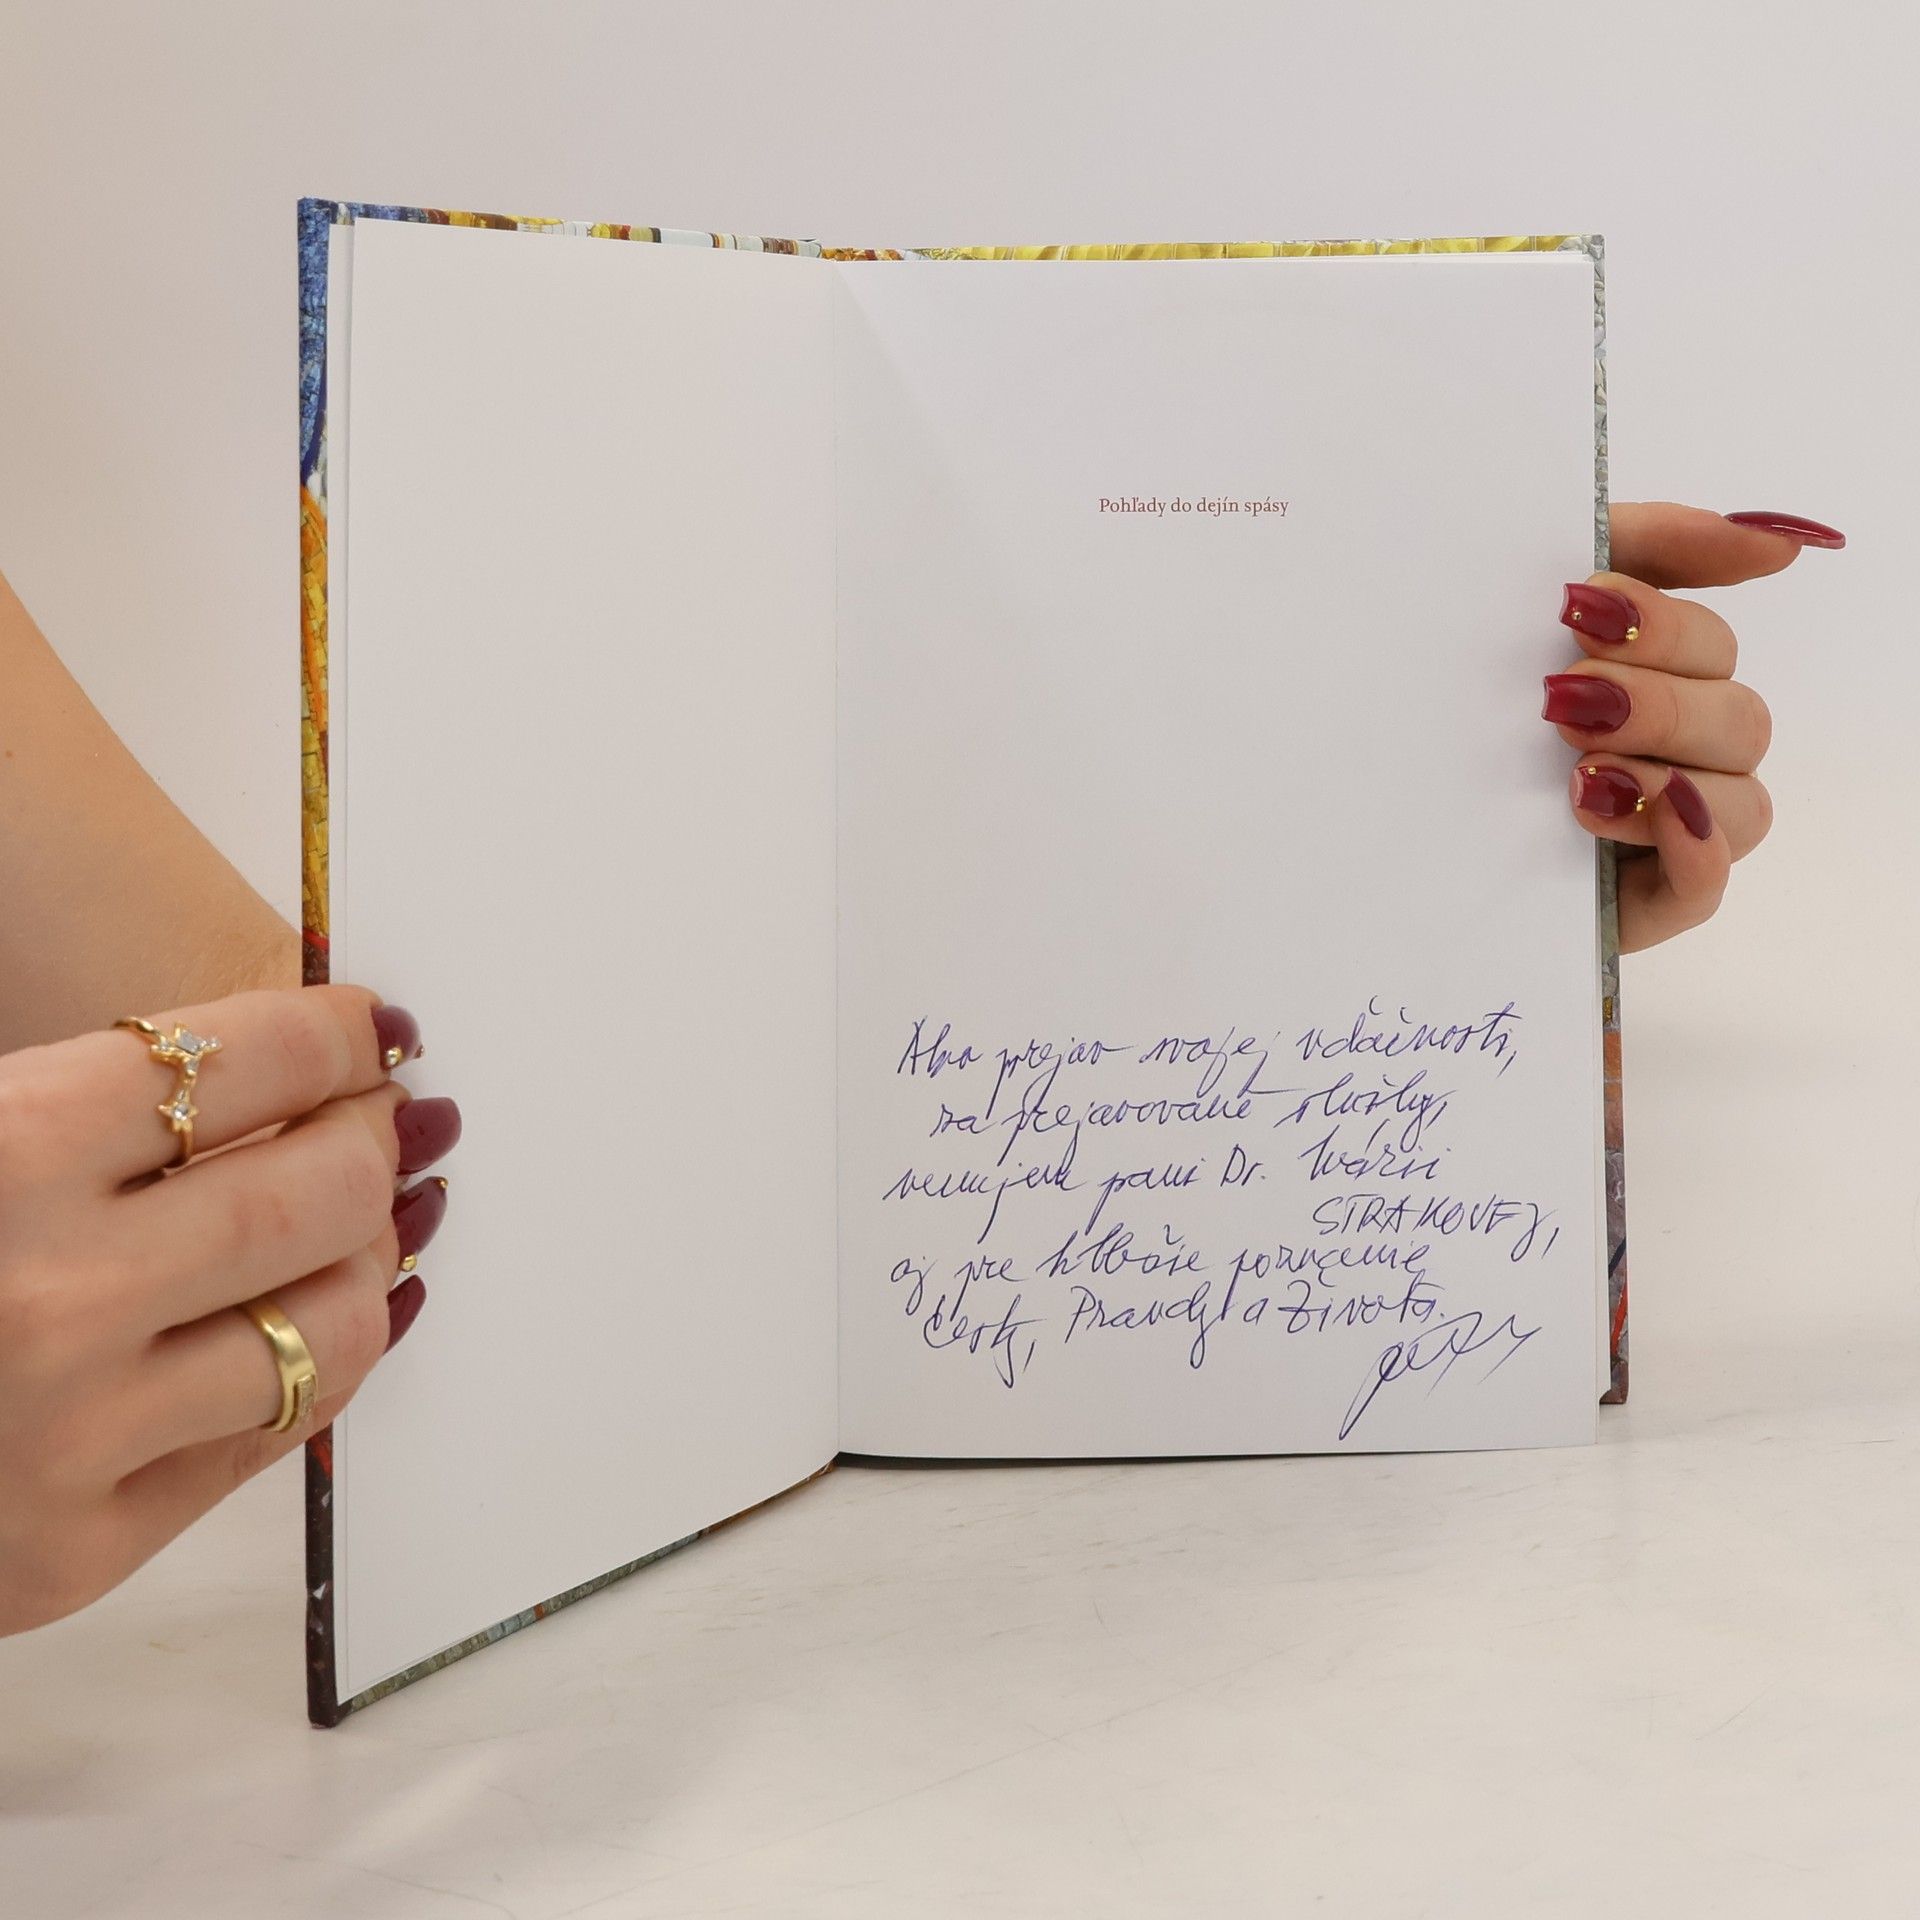 Pohľady do dejín spásy
Ako prejav svojej vďačnosti,
za prejavované služby,
venujem pani Dr. Márii
STRAKOVEJ,
aj pre hlbšie poznanie
Cesty, Pravdy a Života.